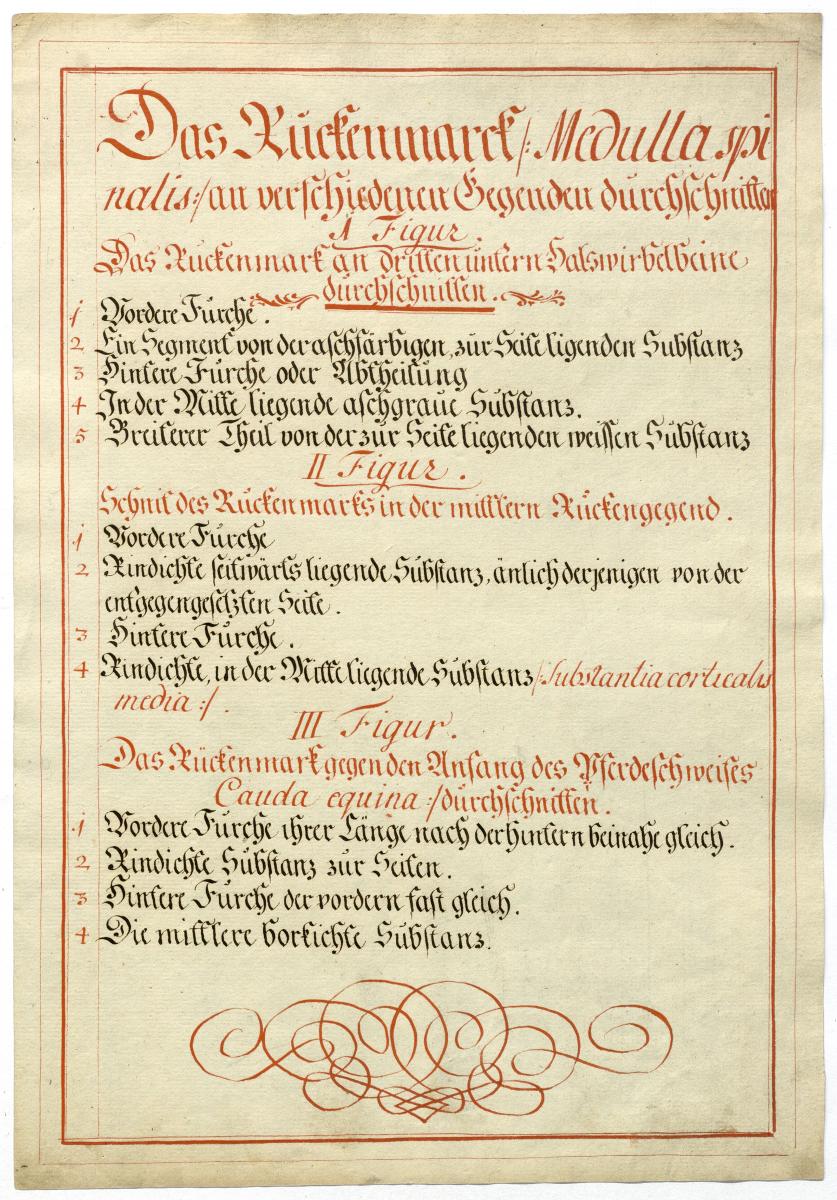 Das Rückenmarck /: Medulla spi
nalis :/ an verschiedenen Gegenden durchschnitten
I Figur.
Das Ruckenmark an dritten untern Halswirbelbeine
durchschnitten.
1 Vordere Furche.
2 Ein Segment von der aschfärbigen, zür Seite ligenden Substanz
3 Hintere Fürche oder Abtheilung
4 In der Mitte liegende aschgraue Substanz.
5 Breiterer Theil von der zür Seite liegenden weissen Substanz
II Figur.
Schnit des Ruckenmarks in der mittlern Ruckengegend.
1 Vordere Fürche
2 Rindichte seitwärts liegende Substanz, änlich derjenigen von der
entgegengesetzten Seite.
3 Hintere Fürche.
4 Rindichte, in der Mitte liegende Substanz /: Substantia corticalis
media :/.
III Figur.
Das Rückenmark gegen den Anfang des Pferdeschweifes
Cauda equina :/ dürchschnitten.
1 Vordere Fürche ihrer Länge nach der hintern beinahe gleich.
2 Rindichte Substanz zur Seiten.
3 Hintere Fürche der vordern fast gleich.
4 Die mittlere borkichte Substanz.